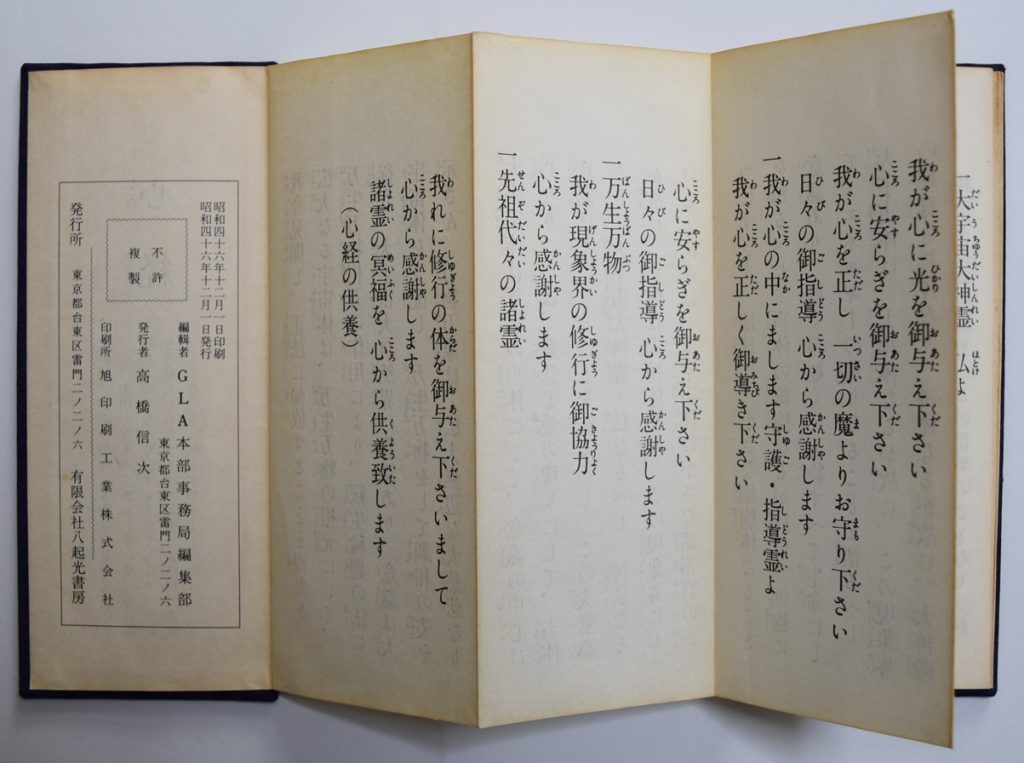 一 大宇宙大神霊 仏よ
我が心に光を御与え下さい
心に安らぎを御与え下さい
我が心を正し 一切の魔よりお守り下さい
日々の御指導 心から感謝します
一 我が心の中にまします守護・指導霊よ
我が心を正しく御導き下さい
心に安らぎを御与え下さい
日々の御指導 心から感謝します
一 万生万物
我が現象界の修行に御協力
心から感謝します
一 先祖代々の諸霊
我れに修行の体を御与え下さいまして
心から感謝します
諸霊の冥福を 心から供養致します
(心経の供養)
昭和四十六年十二月一日印刷
昭和四十六年十二月一日発行
不許
複製
編輯者 GLA本部事務局編集部
東京都台東区雷門二ノ二ノ六
発行者 高橋信次
印刷所 旭印刷工業株式会社
発行所 東京都台東区雷門二ノ二ノ六 有限会社八起光書房